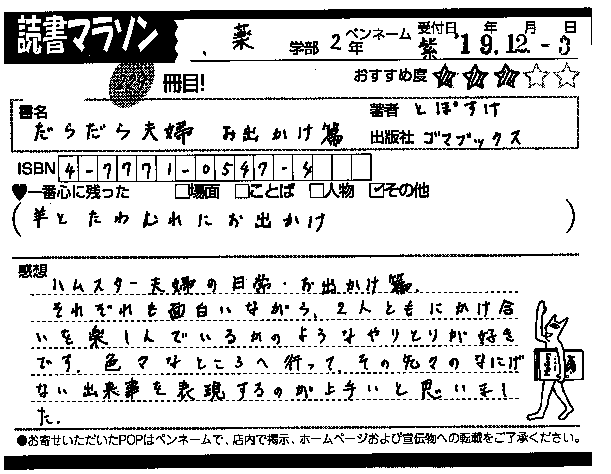 読書マラソン
薬 学部 2年 ペンネーム 紫 受付日 年 月 日
'19.12.-3
冊目!
おすすめ度 ★★★☆☆
書名 だらだら夫婦 お出かけ篇
著者 とぼすけ
出版社 ゴマブックス
ISBN 4-7771-0547-4
♥一番心に残った □場面 □ことば □人物 ☑その他
(羊とたわむれにお出かけ)
感想
ハムスター夫婦の日常・お出かけ篇。
それぞれも面白いながら、2人ともにかけ合
いを楽しんでいるかのようなやりとりが好き
です。色々なところへ行って、その先々のなにげ
ない出来事を表現するのが上手いと思いまし
た。
●お寄せいただいたPOPはペンネームで、店内で掲示、ホームページおよび宣伝物への転載をご了承ください。